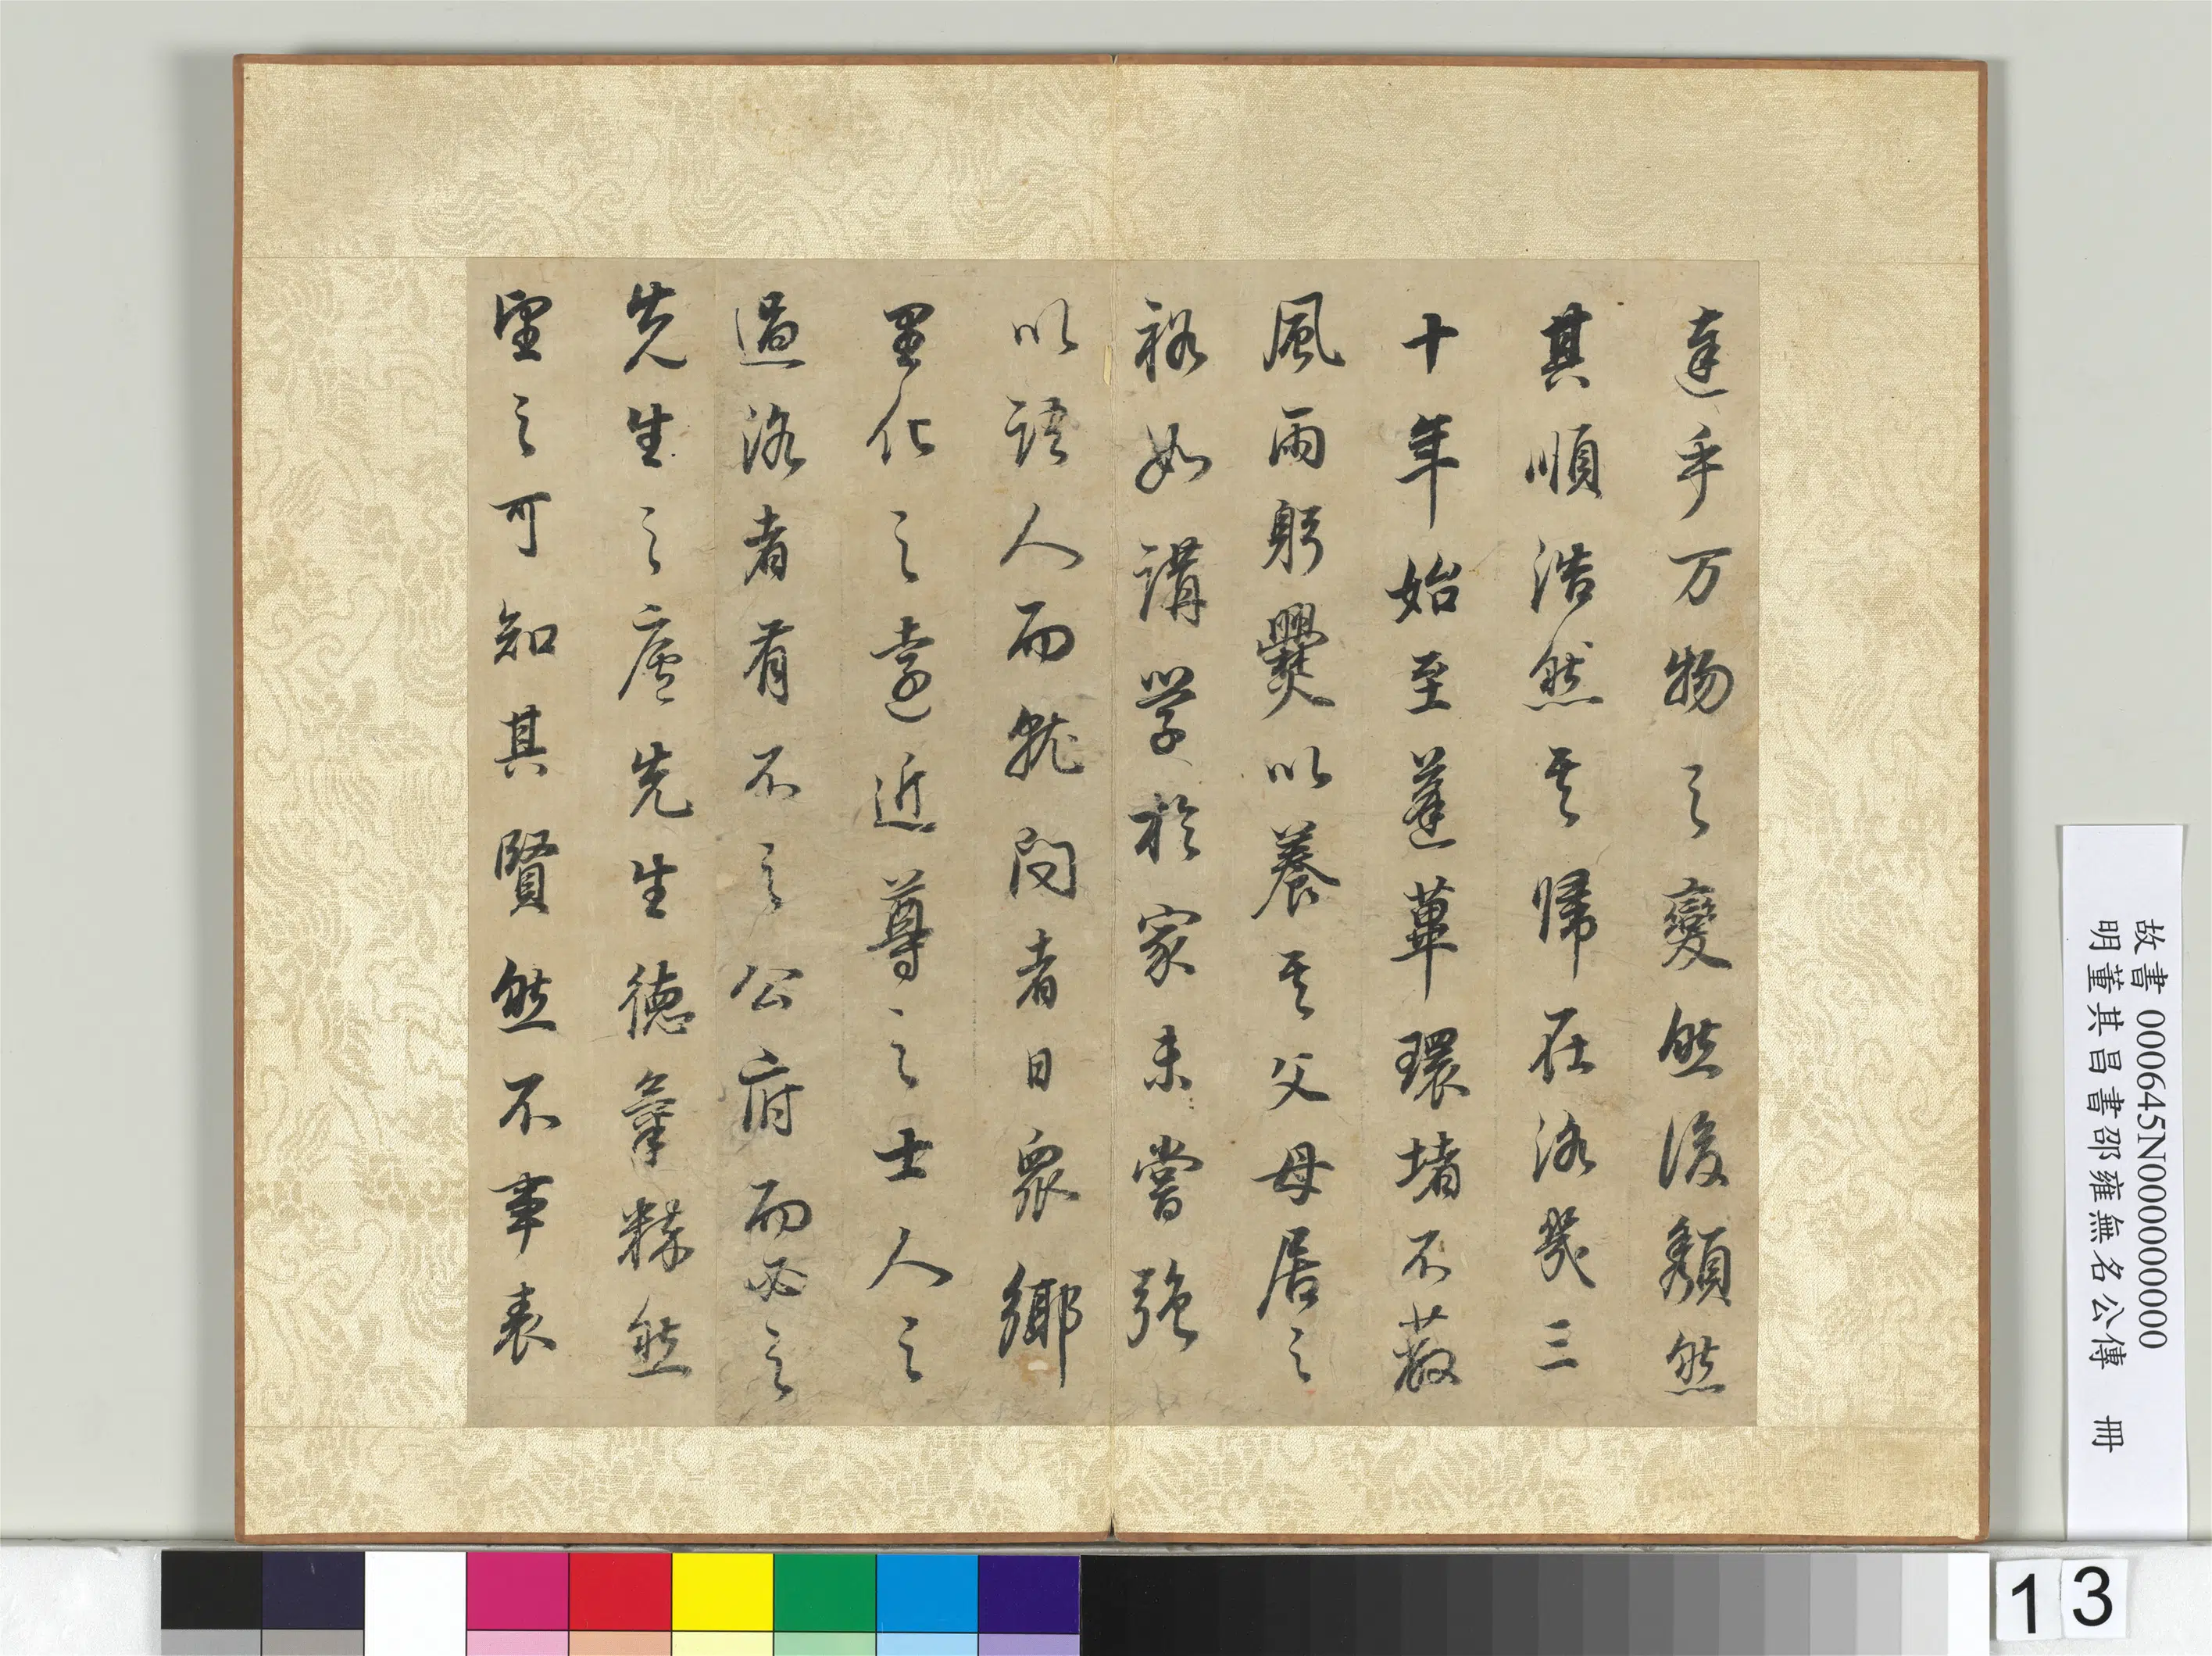 達乎万物之變然後頹然
其順浩然其帰在洛幾三
十年始至蓬蓽環堵不蔽
風雨躬爨以養其父母居之
裕如講学於家未嘗強
以語人而就問者日眾鄉
里化之遠近尊之士人之
過洛者有不之公府而必之
先生之廬先生德氣粹然
望之可知其賢然不事表
故書 000645N000000000
明董其昌書邵雍無名公傳 冊
13